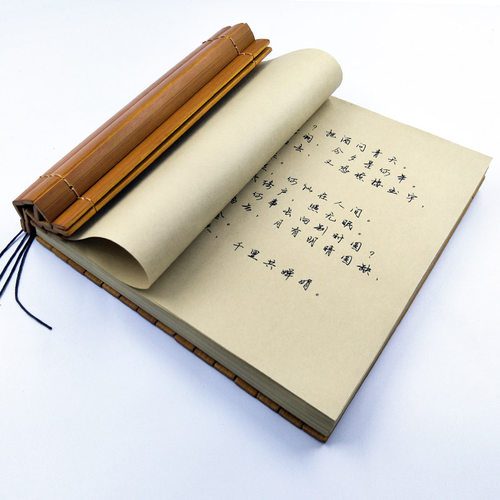 ？把酒问青天
今夕是何年。
又恐琼楼玉宇，
何似在人间。
绮户，照无眠。
何事长向别时圆？
月有阴晴圆缺，
千里共婵娟。